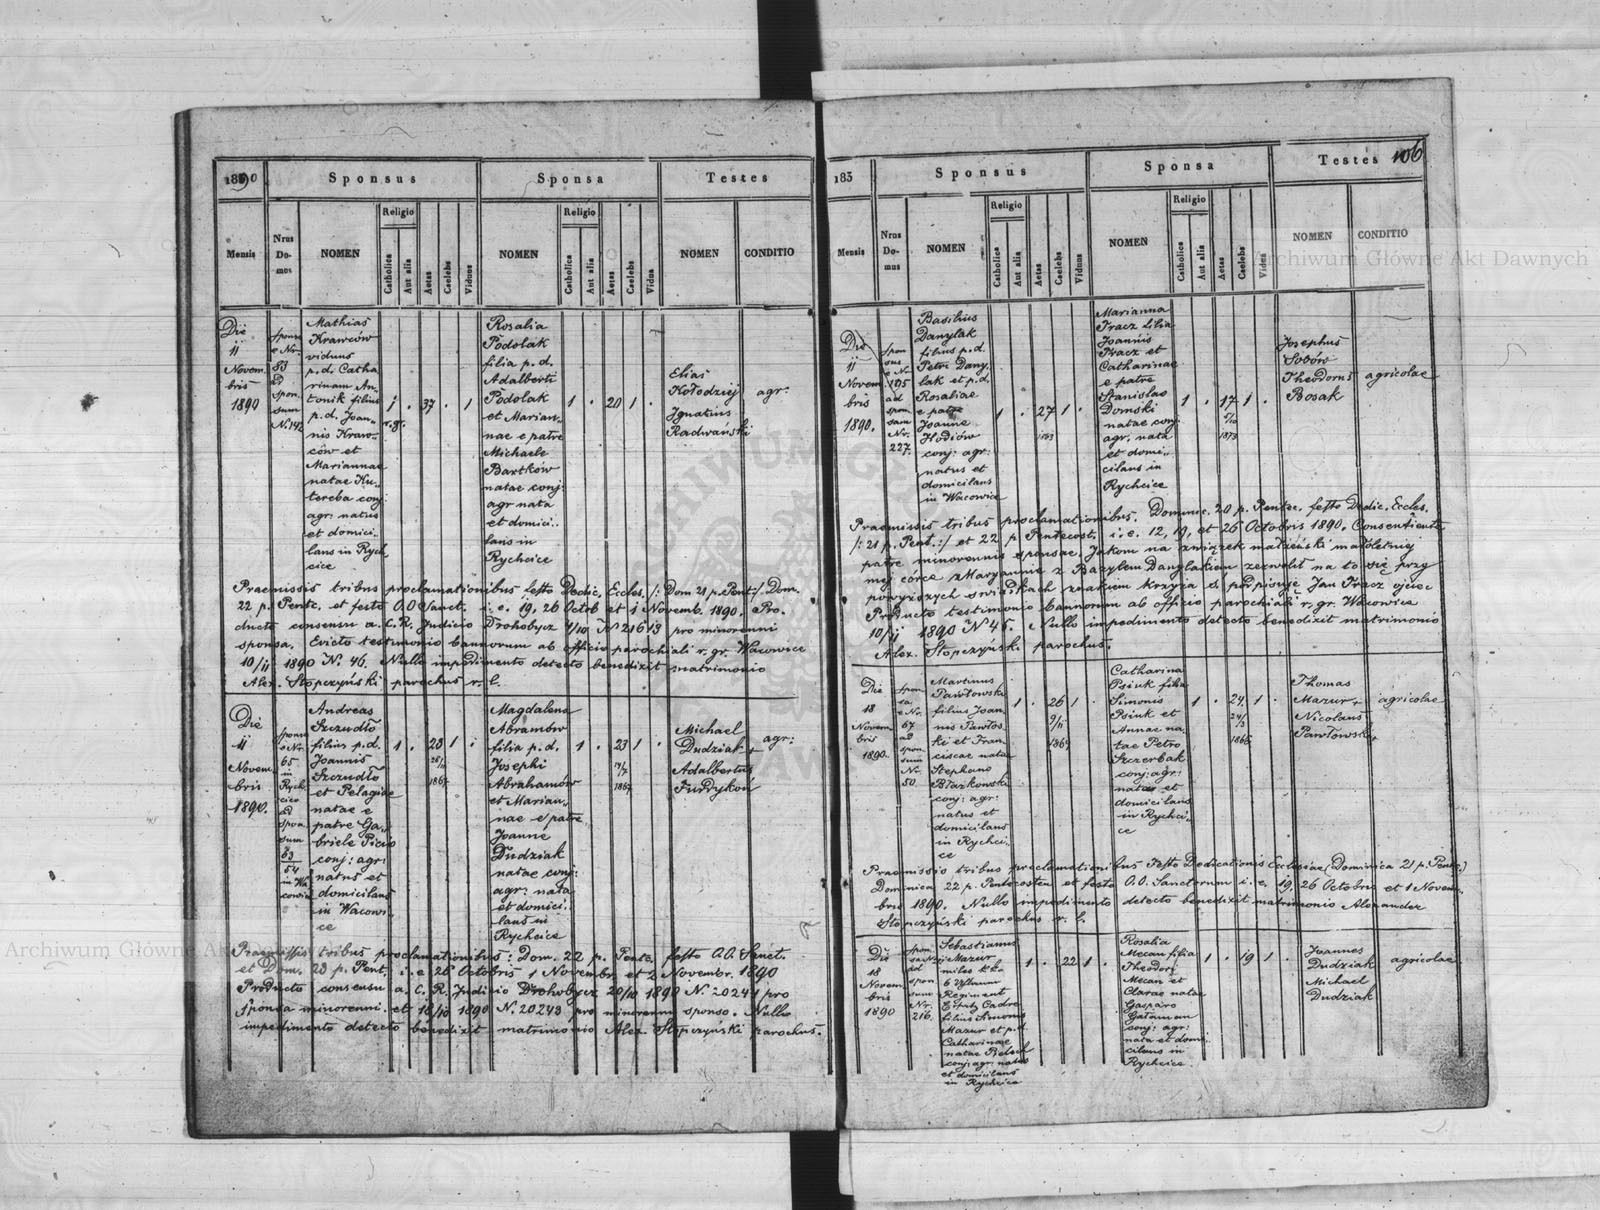 1890 Sponsus Sponsa Testes
Mensis Nrus Domus NOMEN Religio Catholica Aut alia Aetas Caelebs Viduus NOMEN Religio Catholica Aut alia Aetas Caelebs Vidua NOMEN CONDITIO
Die
11
Novem
bris
1890
Sponsi
e Nr.
83
ad
spon.
sam
N. 142
Mathias
Krawców
viduus
p.d. Catha
rinam An-
tonik filius
p.d. Joan-
nis Kraw-
ców et
Mariannae
natae Ku-
tereba conj:
agr: natus
et domici-
lans in Rych
cice
1
r. gr.
37
1
Rosalia
Podolak
filia p.d.
Adalberti
Podolak
et Marian-
nae e patre
Michaele
Bartków
natae conj:
agr nata
et domici-
lans in
Rychcice
1 . 20 1 .
Elias
Kołodziej
Ignatius
Radwański
agr:
Praemissis tribus proclamationibus festo Dedic. Eccles. /: Dom 21 p. Pent :/ Dom.
22 p. Pente. et festo O.O Sanct. i. e. 19, 26 Octob et 1 Novemb. 1890. Pro.
ducto consensu a. C. R. Judicio Drohobycz 4/10 N 21613 pro minorenni
sponsa. Evicto testimonio bannorum ab officio parochiali r. gr. Wacowice
10/11 1890 N. 46. Nullo impedimento detecto benedixit matrimonio
Alex. Stopczyński parochus r. l.
Die
11
Novem
bris
1890.
sponsi
e Nr.
65
in
Rych-
cice
ad
spon
sam
83
54
in Wa
cowice
Andreas
Szczudło
filius p.d.
Joannis
Szczudło
et Pelagiae
natae e
patre Ga-
briele Picio
conj: agr:
natus et
domicilans
in Wacowi-
ce
1 . 23 1 .
1867
Magdalena
Abramów
filia p.d.
Josephi
Abrahamów
et Marian-
nae e patre
Joanne
Dudziak
natae conj:
agr: nata
et domici-
lans in
Rychcice
1 . 23 1 .
1867
Michael
Dudziak +
Adalbertus
Furdykoń
agr:
Praemissis tribus proclamationibus: Dom. 22 p. Pente. festo O.O. Sanct.
et Dom. 23 p. Pent. i. e 26 Octobris 1 Novembr et 2 Novembr. 1890
Producto consensu a. C. R. Judicio Drohobycz 20/10 1890 N. 20244 pro
Sponsa minorenni. et 18/10 1890 N. 20243 pro minorenni sponso. Nullo
impedimento detecto benedixit matrimonio Alex. Stopczyński parochus.
183 Sponsus Sponsa Testes 106
Mensis Nrus Domus NOMEN Religio Catholica Aut alia Aetas Caelebs Viduus NOMEN Religio Catholica Aut alia Aetas Caelebs Vidua NOMEN CONDITIO
Die
11
Novem
bris
1890.
spon
sus
e Nr
195
ad
spon
sam
Nr.
227.
Basilius
Danylak
filius p.d.
Petri Dany-
lak et p.d.
Rosaliae
e patre
Joanne
Hodiów
conj: agr:
natus et
domicilans
in Wacowice
1 . 27 1 .
1863
Marianna
Tracz filia
Joannis
Tracz et
Catharinae
e patre
Stanislao
Domski
natae conj.
agr. nata
et domi-
cilans in
Rychcice
1 . 17 1 .
1873
Josephus
Sobów
Theodorus
Bosak
agricolae
Praemissis tribus proclamationibus. Dominic. 20 p. Pentec. festo Dedic. Eccles.
/: 21 p. Pent. :/ et 22 p Pentecost. i. e. 12, 19, et 26 Octobris 1890. Consentiente
patre minorennis sponsae. Jakom na związek małżeński małoletniej
mej córce Maryannie z Bazylem Danylakiem zezwolił na to się przy
powyższych świadkach znakiem krzyża ś. podpisuję Jan Tracz ojciec
Producto testimonio bannorum ab officio parochiali r. gr. Wacowice
10/11 1890 N 45. Nullo impedimento detecto benedixit matrimonio
Alex. Stopczyński parochus.
Die
18
Novem
bris
1890.
spon
sa
e Nr.
67
ad
spon
sum
Nr.
50.
Martinus
Pawłowski
filius Joan
nis Pawłos
ki et Fran
ciscae natae
Stephano
Błazkowski
conj: agr:
natus et
domicilans
in Rychci-
ce
1 . 26 1
9/11
1864
Catharina
Psiuk filia
Simonis
Psiuk et
Annae na-
tae Petro
Szczerbak
conj: agr:
nata et
domicilans
in Rychci-
ce
1 . 24. 1 .
1866
Thomas
Mazur +
Nicolaus
Pawłowski +
agricolae
Praemissio tribus proclamationibus Festo Dedicationis Ecclesiae (Dominica 21 p. Pente.)
Dominica 22 p. Pentecosten et festo O.O. Sanctorum i. e. 19, 26 Octobris et 1 Novem-
bris 1890. Nullo impedimento detecto benedixit matrimonio Alexander
Stopczyński parochus r. l.
Die
18
Novem
bris
1890
ad
spon
sum
Nr.
216.
Sebastianus
Mazur
miles k.k.
6 Uhlanen
Regiment
Cadre
filius Simonis
Mazur et p.d.
Catharinae
natae Belsch
conj: agr: natus
et domicilans
in Rychcice
1 . 22 1 .
Rosalia
Mecan filia
Theodori
Mecan et
Clarae natae
Gasparo
Gataman
conj: agr:
nata et domi
cilans in
Rychcice
1 . 19 1 .
Joannes
Dudziak
Michael
Dudziak
agricolae
Archiwum Główne Akt Dawnych
Archiwum Główne Akt Dawnych